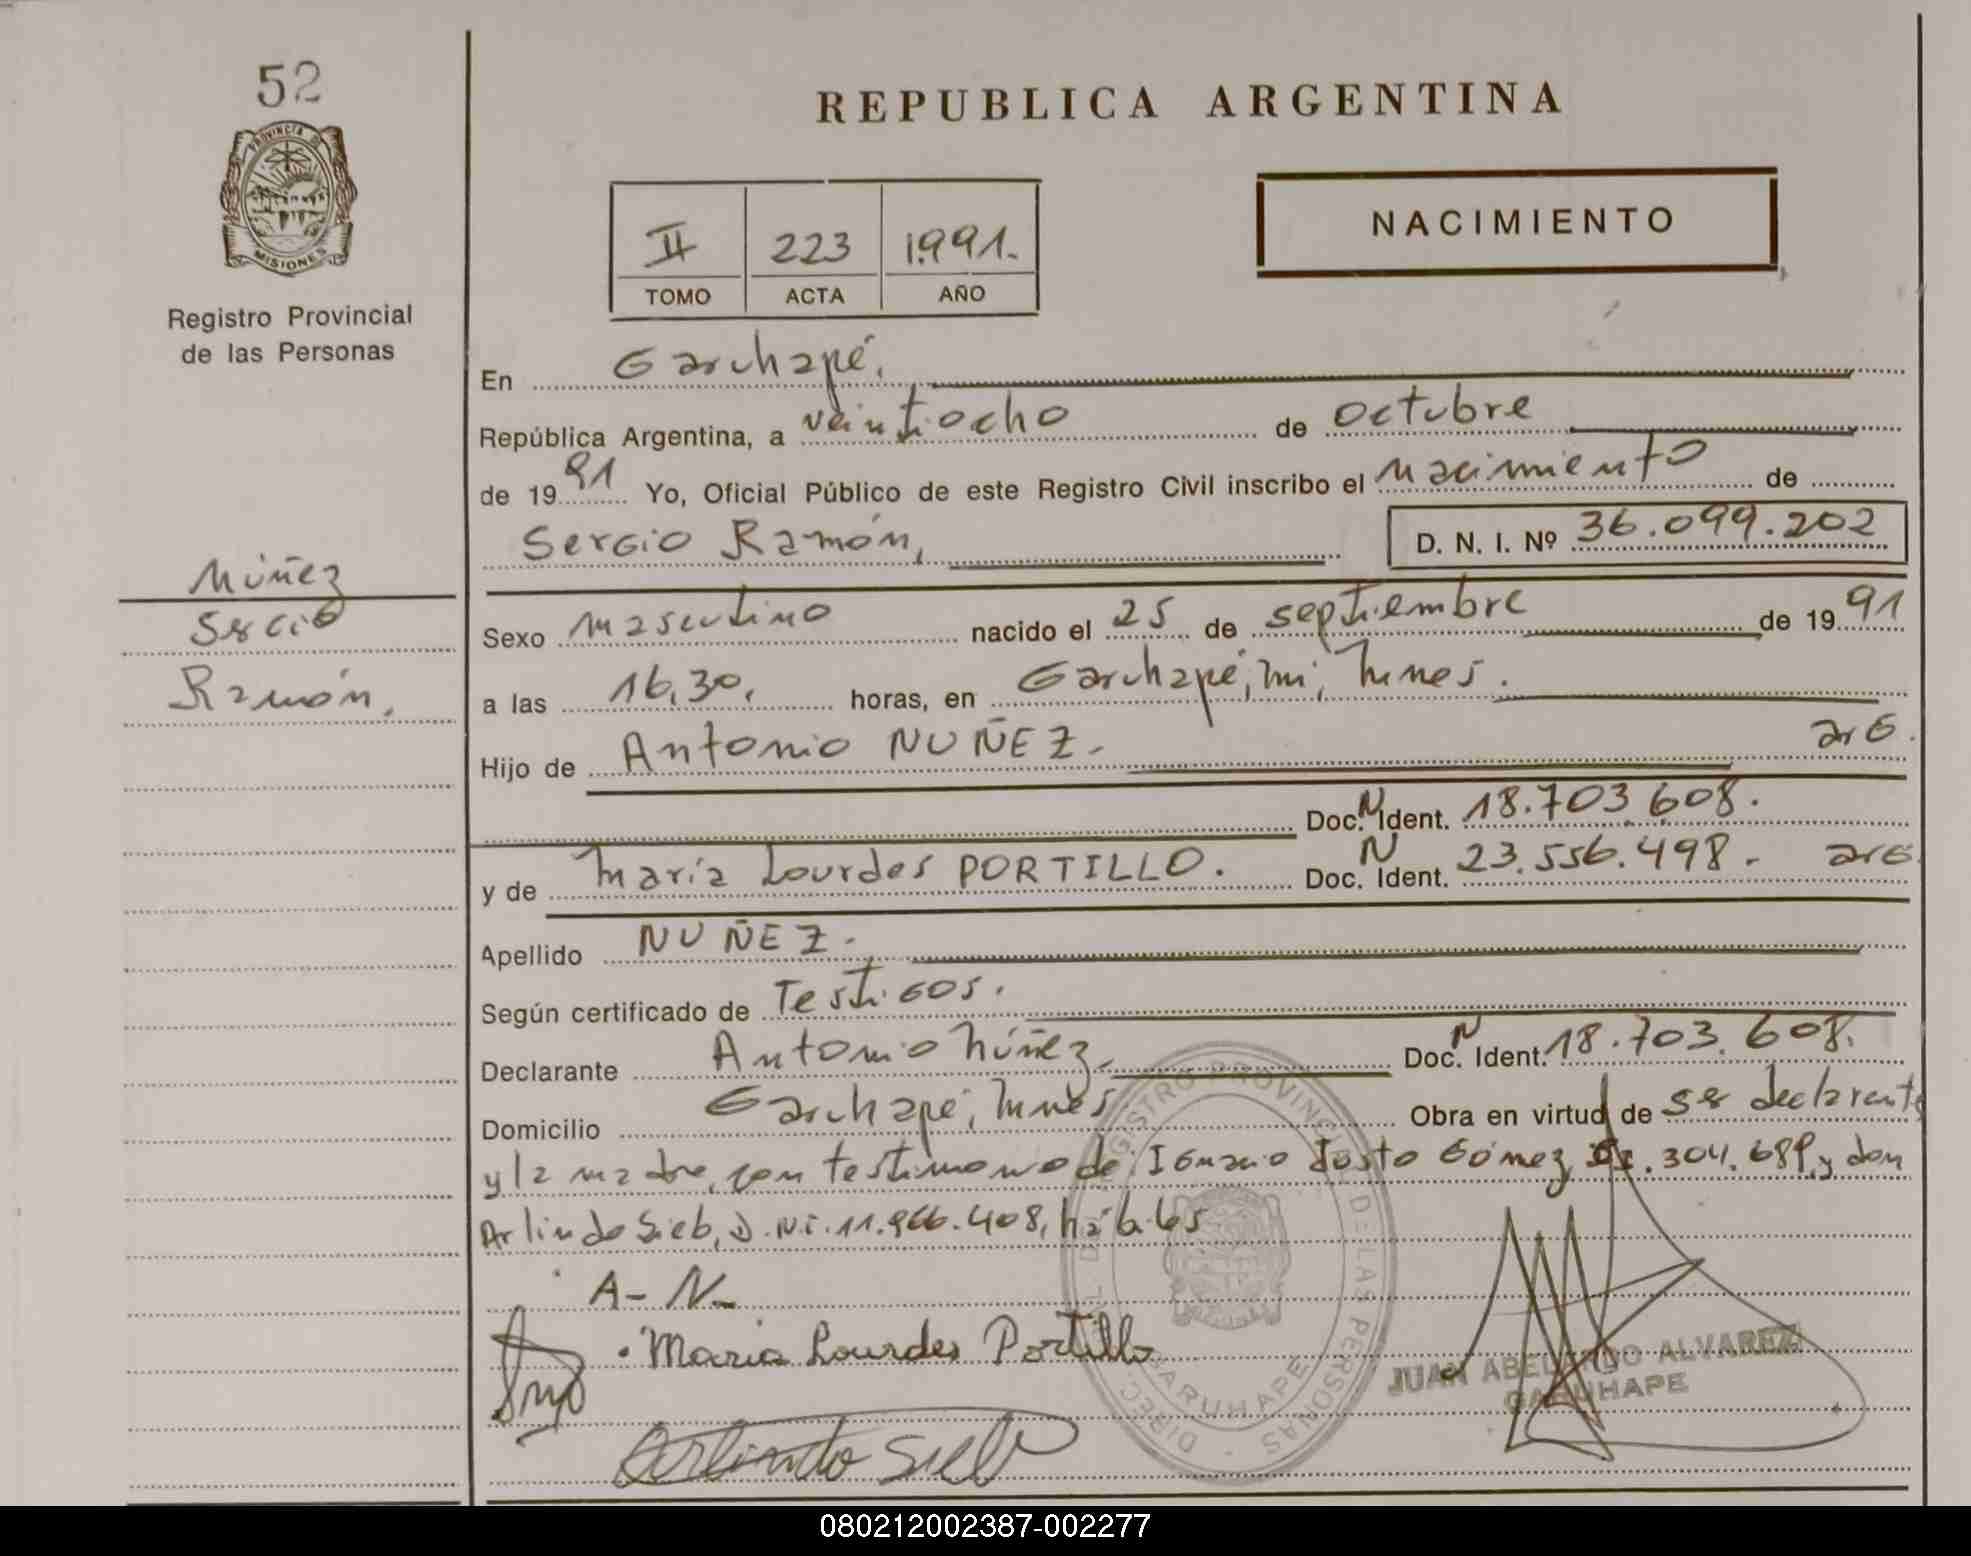 52
REPUBLICA ARGENTINA
PROVINCIA DE
MISIONES
Registro Provincial
de las Personas
II 223 1991.
TOMO ACTA AÑO
NACIMIENTO
En Garuhapé,
República Argentina, a veintiocho de octubre
de 1991 Yo, Oficial Público de este Registro Civil inscribo el nacimiento de
Sergio Ramón, D. N. I. Nº 36.099.202
Núñez
Sergio
Ramón,
Sexo masculino nacido el 25 de septiembre de 1991
a las 16,30, horas, en Garuhapé, mi,
Hijo de Antonio NUÑEZ. arG.
Doc. N Ident. 18.703.608.
y de María Lourdes PORTILLO. Doc. N Ident. 23.556.498. arG.
Apellido NUÑEZ.
Según certificado de Testigos.
Declarante Antonio Núñez, Doc. N Ident. 18.703.608.
Domicilio Garuhapé, Obra en virtud de ser declarante
y la madre, con testimonio de Ignacio Justo Gómez, .304.689, y don
Arlindo Sieb, D.N.I. 11.966.408, hábiles
A- N-
Maria Lourdes Portillo
Arlindo Sieb
DIREC. GRAL. DEL REGISTRO PROVINCIAL DE LAS PERSONAS
GARUHAPE
JUAN ABELARDO ALVAREZ
GARUHAPE
080212002387-002277